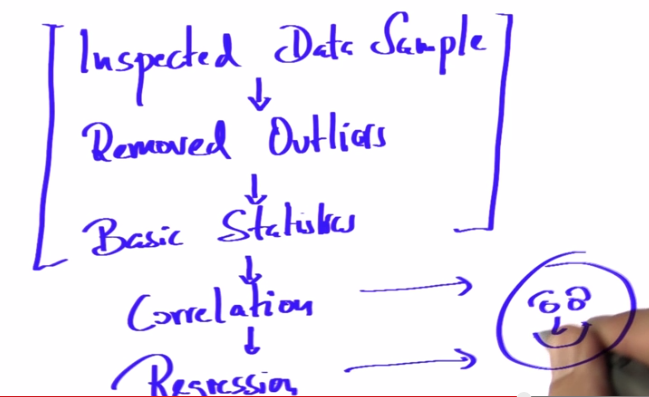 Inspected Data Sample
Removed Outliers
Basic Statistics
Correlation
Regression